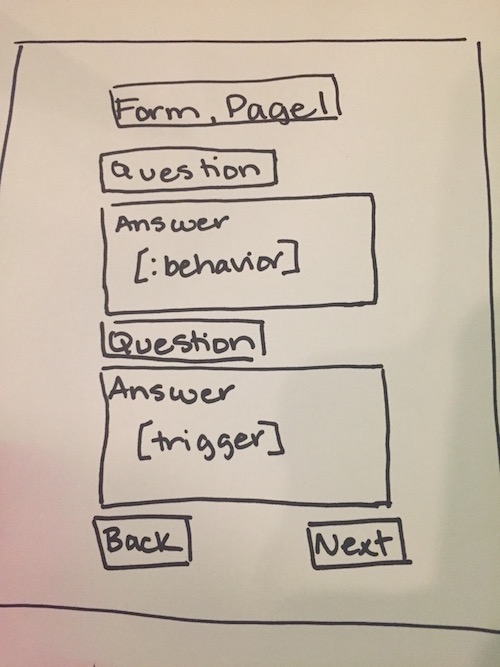 Form, Page 1
Question
Answer
[:behavior]
Question
Answer
[trigger]
Back Next